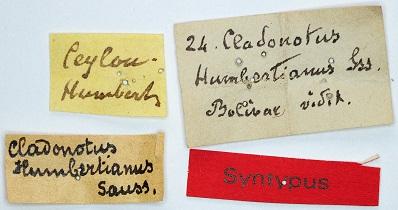 Ceylon.
Humbert
24. Cladonotus
Humbertianus Sss.
Bolivar vidit.
Cladonotus
Humbertianus
Sauss.
Syntypus